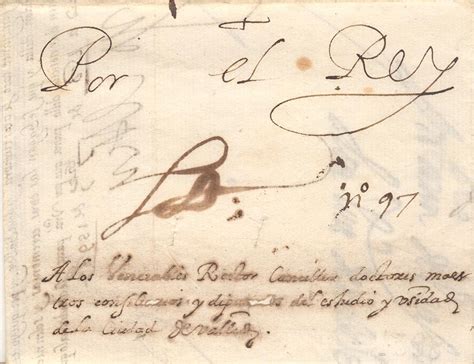 Por el Rey
nº 97
A Los Venerables Retor Canciller doctores maes
tros consiliarios y diputados del estudio y Vsidad
de la Ciudad de Vallid